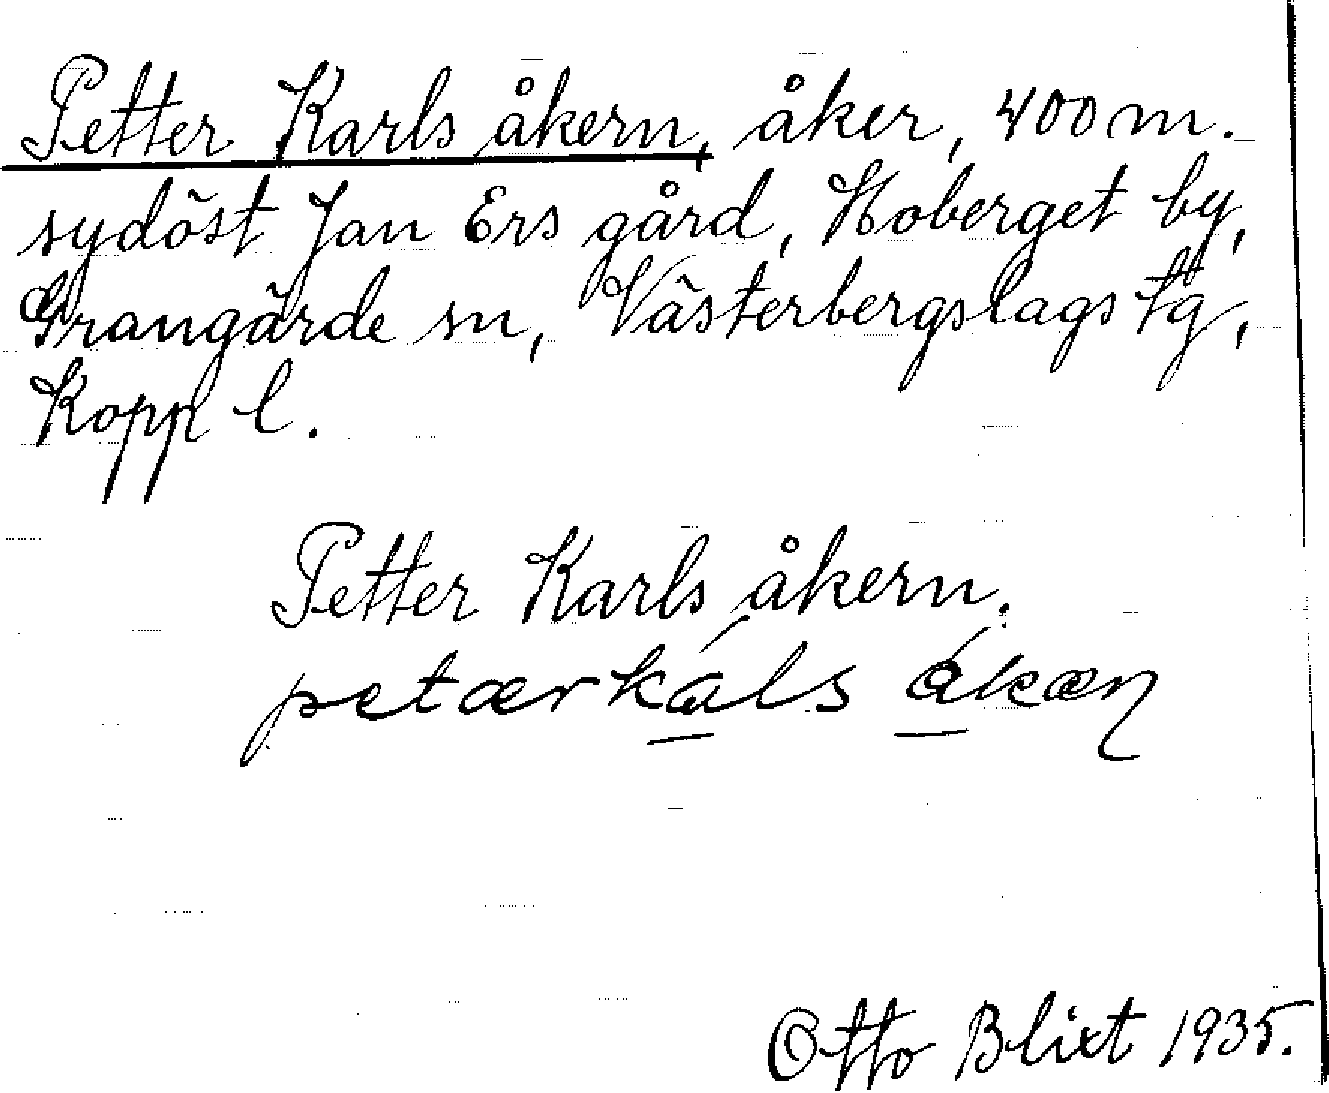 Petter Karls åkern, åker, 400 m.
sydöst Jan Ers gård, Hoberget by,
Grangärde sn, Västerbergslags tg,
Kopp l.
Petter Karls åkern.
petærkáls ákæn
Otto Blixt 1935.